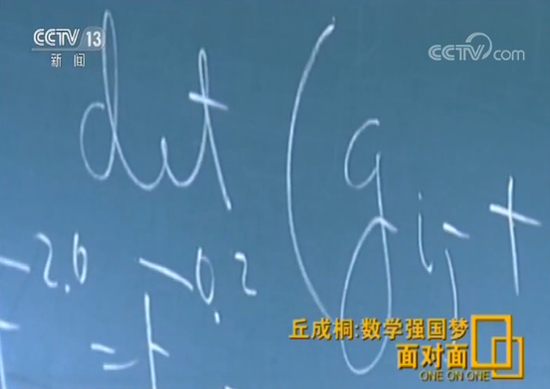 CCTV 13
新闻
CCTV.com
det ( g i j̄ +
-2.0 -0.2
= +
丘成桐:数学强国梦
面对面
ONE ON ONE